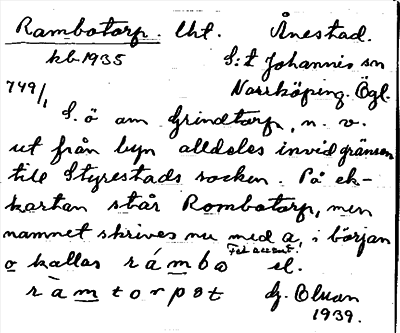 Rambotorp. lht. Ånestad.
kb 1935 S:t Johannis sn
749/1 Norrköping. Ögl.
S. ö om Grindtorp, n. v.
ut från byn alldeles invid gränsen
till Styrestads socken. På ek-
kartan står Rombotorp, men
namnet skrives nu med a, i början
o kallas rámbo el.
ràmtorpet G. Bluan
1939.